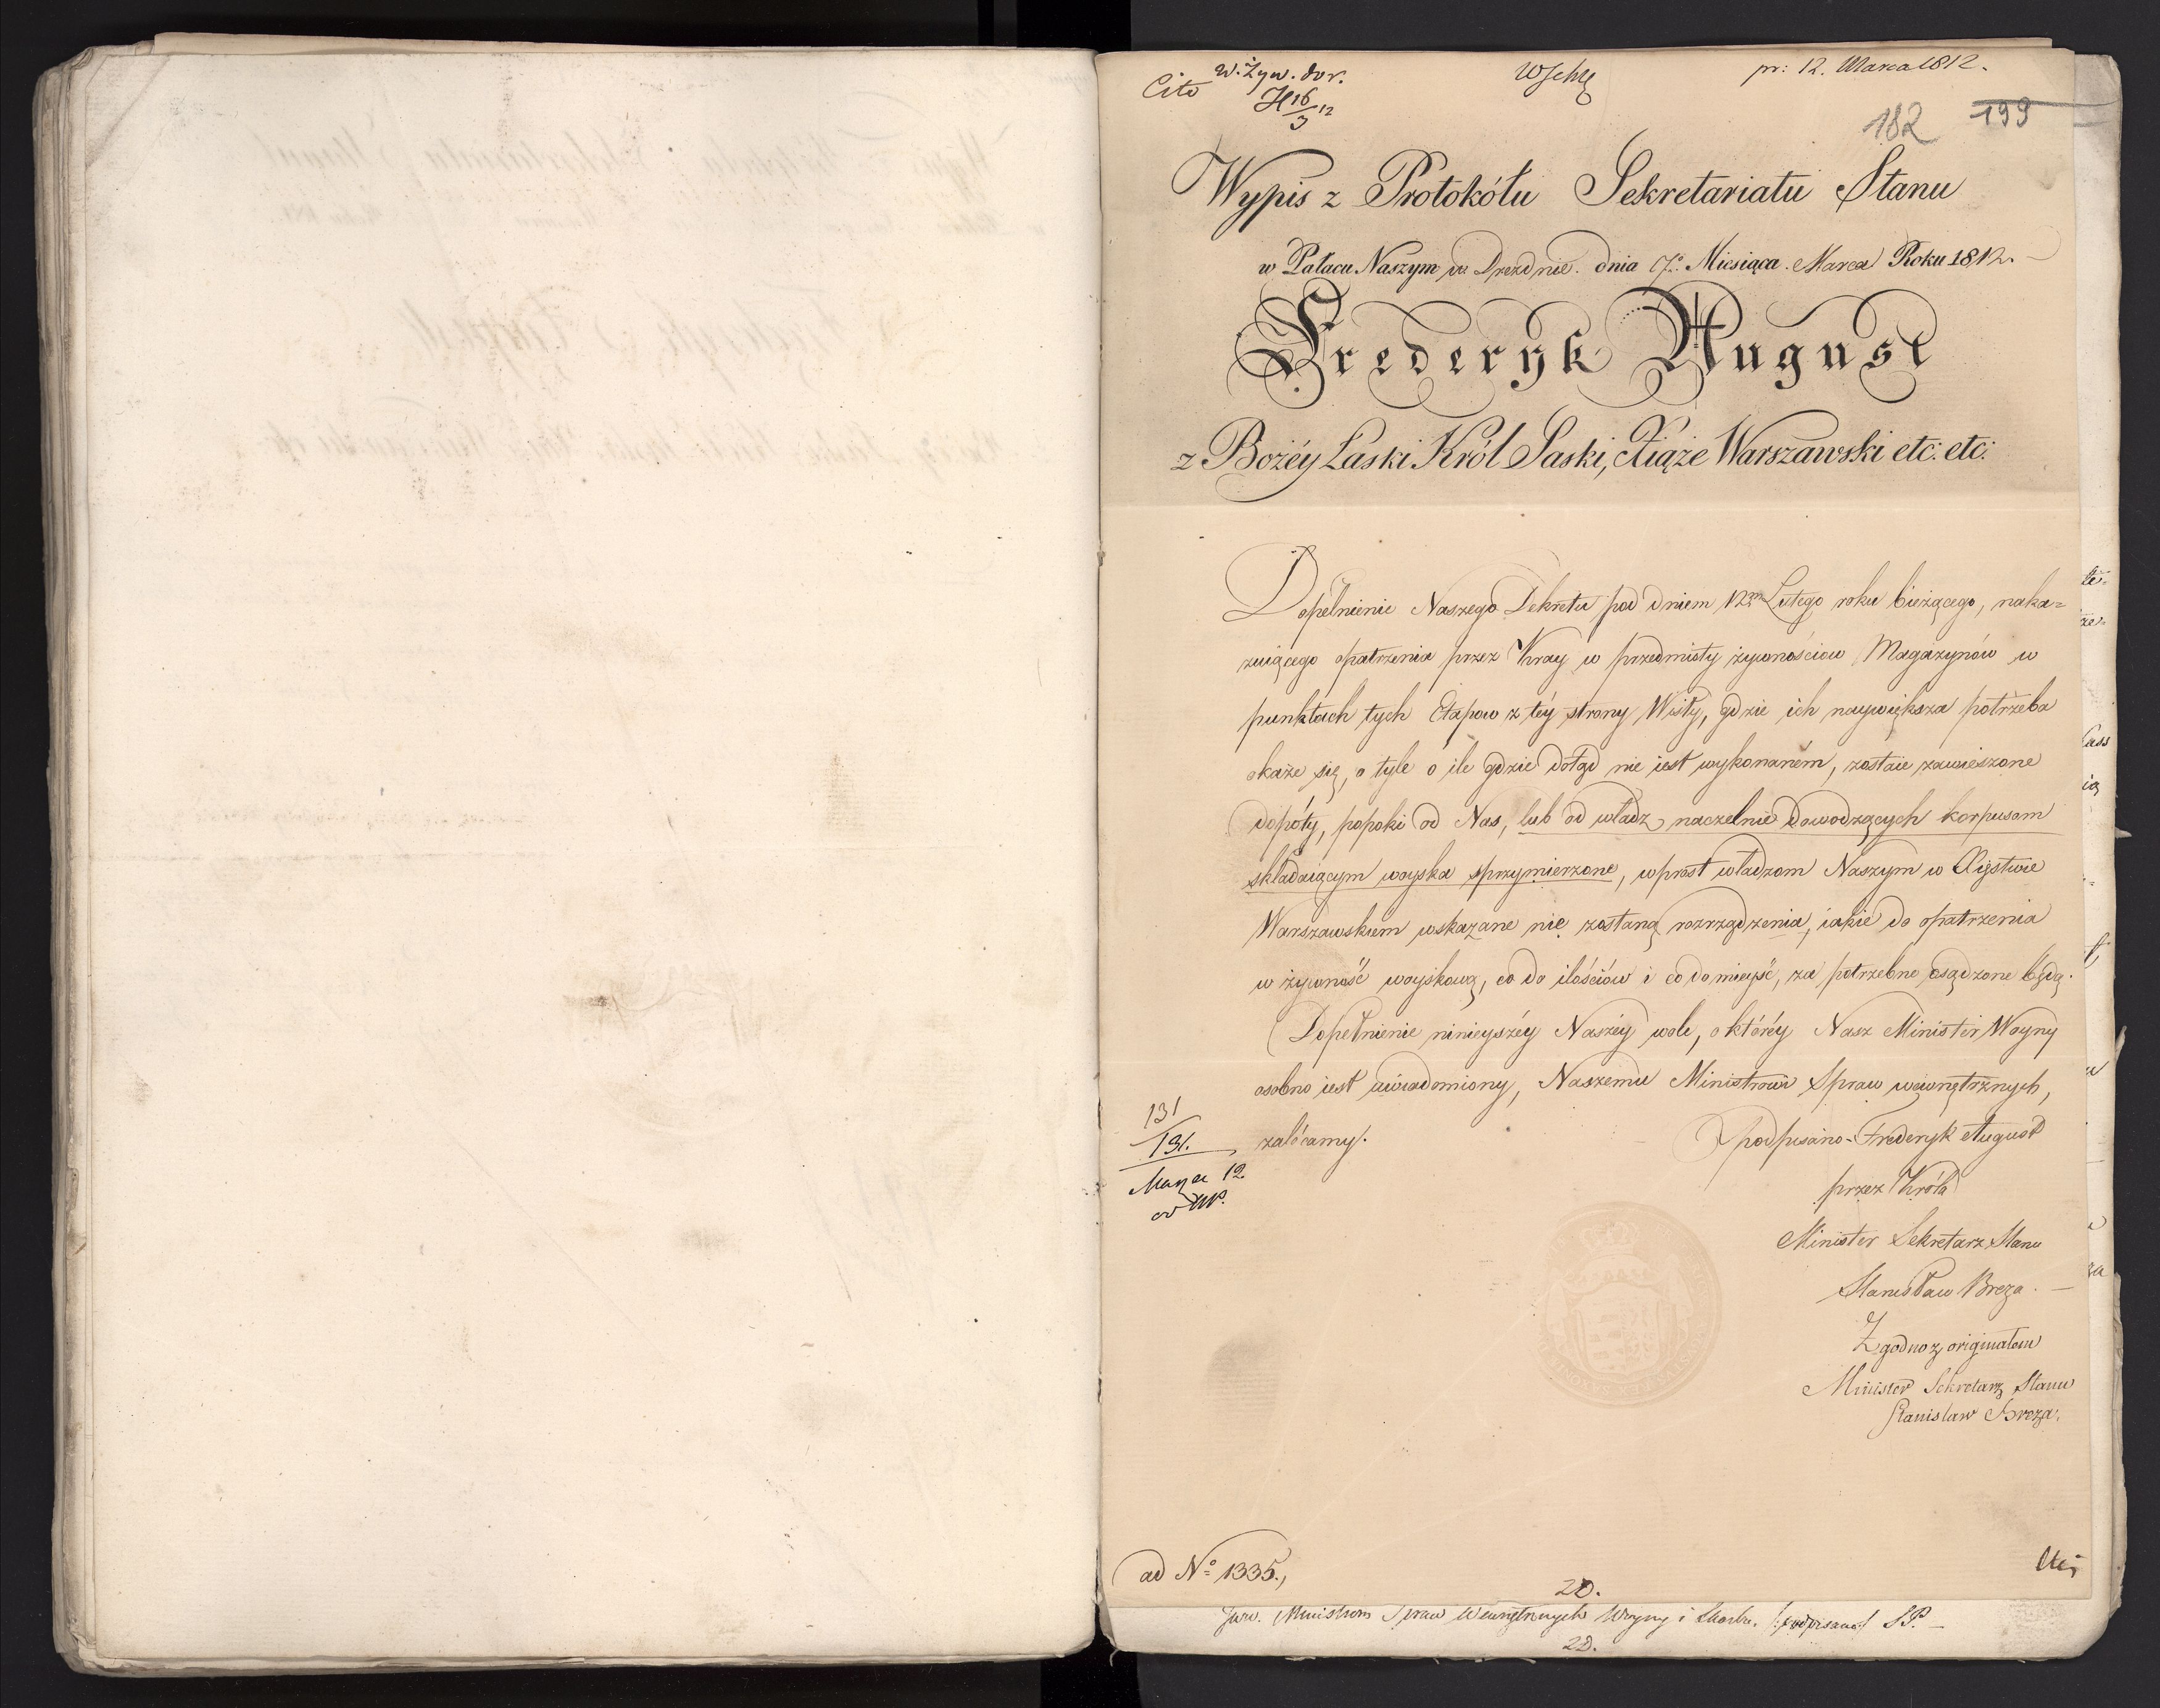 Cito
W. Żyw. dor.
H 16/3 12
Wschę
pr: 12. Marca 1812.
182 199
Wypis z Protokółu Sekretariatu Stanu
w Pałacu Naszym w Dreznie. dnia 7. Miesiąca. Marca Roku 1812.
Frederyk August
z Bożéy Łaski Król Saski, Xiąże Warszawski etc: etc:
Dopełnienie Naszego Dekretu pod dniem 12m Lutego roku bieżącego, naka=
zuiącego opatrzenia przez Kray w przedmioty żywnościow Magazynów w
punktach tych Etapow z téy strony Wisły, gdzie ich naywiększa potrzeba
okaże się, o tyle o ile gdzie dotąd nie iest wykonaném, zostaie zawieszone
dopóty, popoki od Nas, lub od władz naczelnie dowodzących korpusom
składaiącym woyska sprzymierzone, wprost władzom Naszym w Xięstwie
Warszawskiem wskazane nie zostaną rozrządzenia, iakie do opatrzenia
w żywność woyskową, co do ilościów i co do mieysć, za potrzebne osądzone będą.
Dopełnienie ninieyszéy Naszéy woli, o któréy Nasz Minister Woyny
osobno iest uwiadomiony, Naszemu Ministrowi Spraw wewnętrznych,
zalécamy.
131
131.
Marca 12
podpisano - Frederyk August
przez Króla
Minister Sekretarz Stanu
Stanisław Breza. —
Zgodno z originałem
Minister Sekretarz Stanu
Stanisław Breza.
ad No 1335.,
20.
Ministrom Spraw Wewnętrznych Woyny i Skarbu. /:podpisano:/ S.P. —
20.